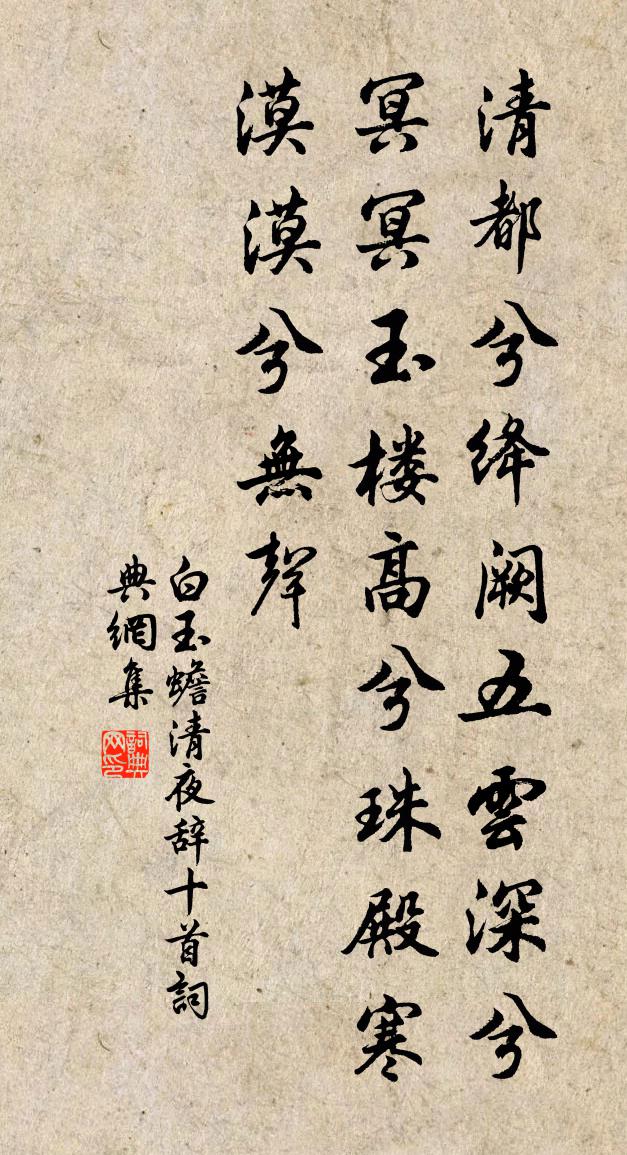 清都兮绛阙五雲深兮
冥冥玉楼高兮珠殿寒
漠漠兮無聲
白玉蟾清夜辞十首詞
典網集
詞典网印